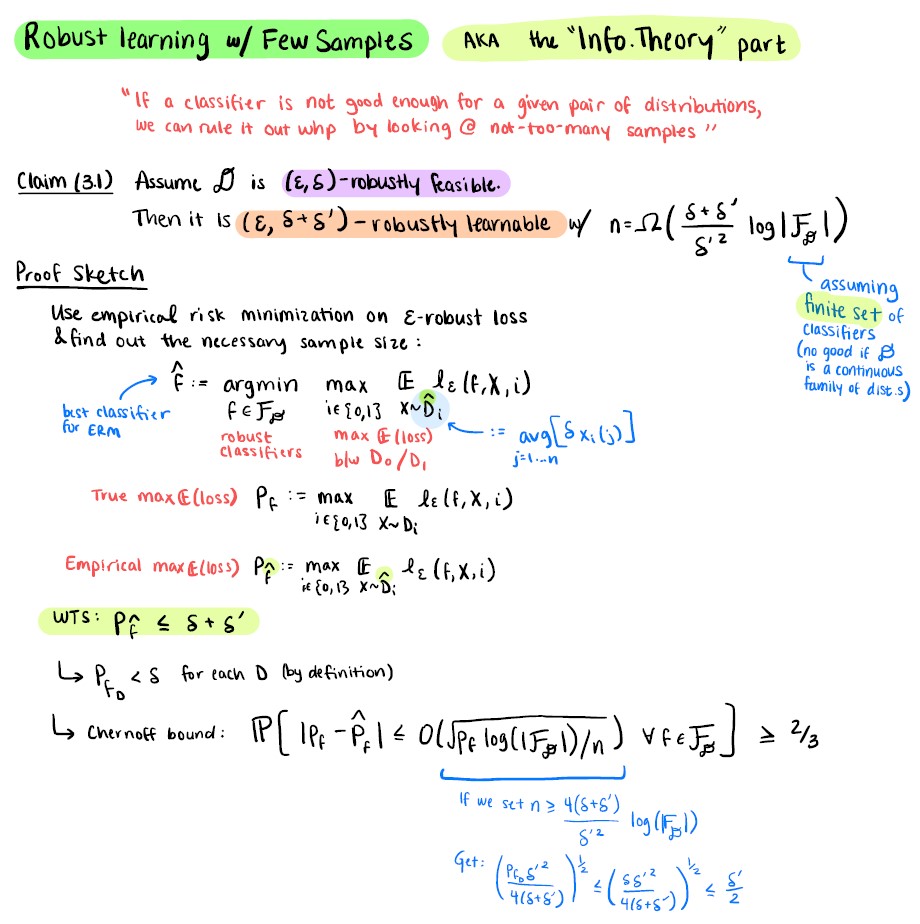 Robust learning w/ Few Samples AKA the "Info.Theory" part
"If a classifier is not good enough for a given pair of distributions,
we can rule it out whp by looking @ not-too-many samples"
Claim (3.1) Assume 𝒟 is (ε,δ)-robustly feasible.
Then it is (ε, δ+δ')-robustly learnable w/ n=Ω(\frac{δ+δ'}{δ'^2} log|ℱ_𝒟|)
assuming
finite set of
classifiers
(no good if 𝒟
is a continuous
family of dist.s)
Proof Sketch
Use empirical risk minimization on ε-robust loss
& find out the necessary sample size:
f̂ := argmin max 𝔼 ℓ_ε(f,X,i)
f∈ℱ_𝒟 i∈{0,1} X~D̂_i
best classifier
for ERM
robust
classifiers
max 𝔼(loss)
b/w D_0/D_1
:= avg[δ_{x_i(j)}]
j=1...n
True max 𝔼(loss) P_f := max 𝔼 ℓ_ε(f,X,i)
i∈{0,1} X~D_i
Empirical max 𝔼(loss) P_f̂ := max 𝔼 ℓ_ε(f,X,i)
i∈{0,1} X~D̂_i
WTS: P_f̂ ≤ δ+δ'
↳ P_{f_D} < δ for each D (by definition)
↳ Chernoff bound: ℙ[ |P_f - P̂_f| ≤ O(√(P_f log(|ℱ_𝒟|)/n)) ∀f∈ℱ_𝒟 ] ≥ 2/3
If we set n ≥ \frac{4(δ+δ')}{δ'^2} log(|ℱ_𝒟|)
Get: (\frac{P_{f_D} δ'^2}{4(δ+δ')})^{1/2} ≤ (\frac{δδ'^2}{4(δ+δ')})^{1/2} ≤ \frac{δ'}{2}